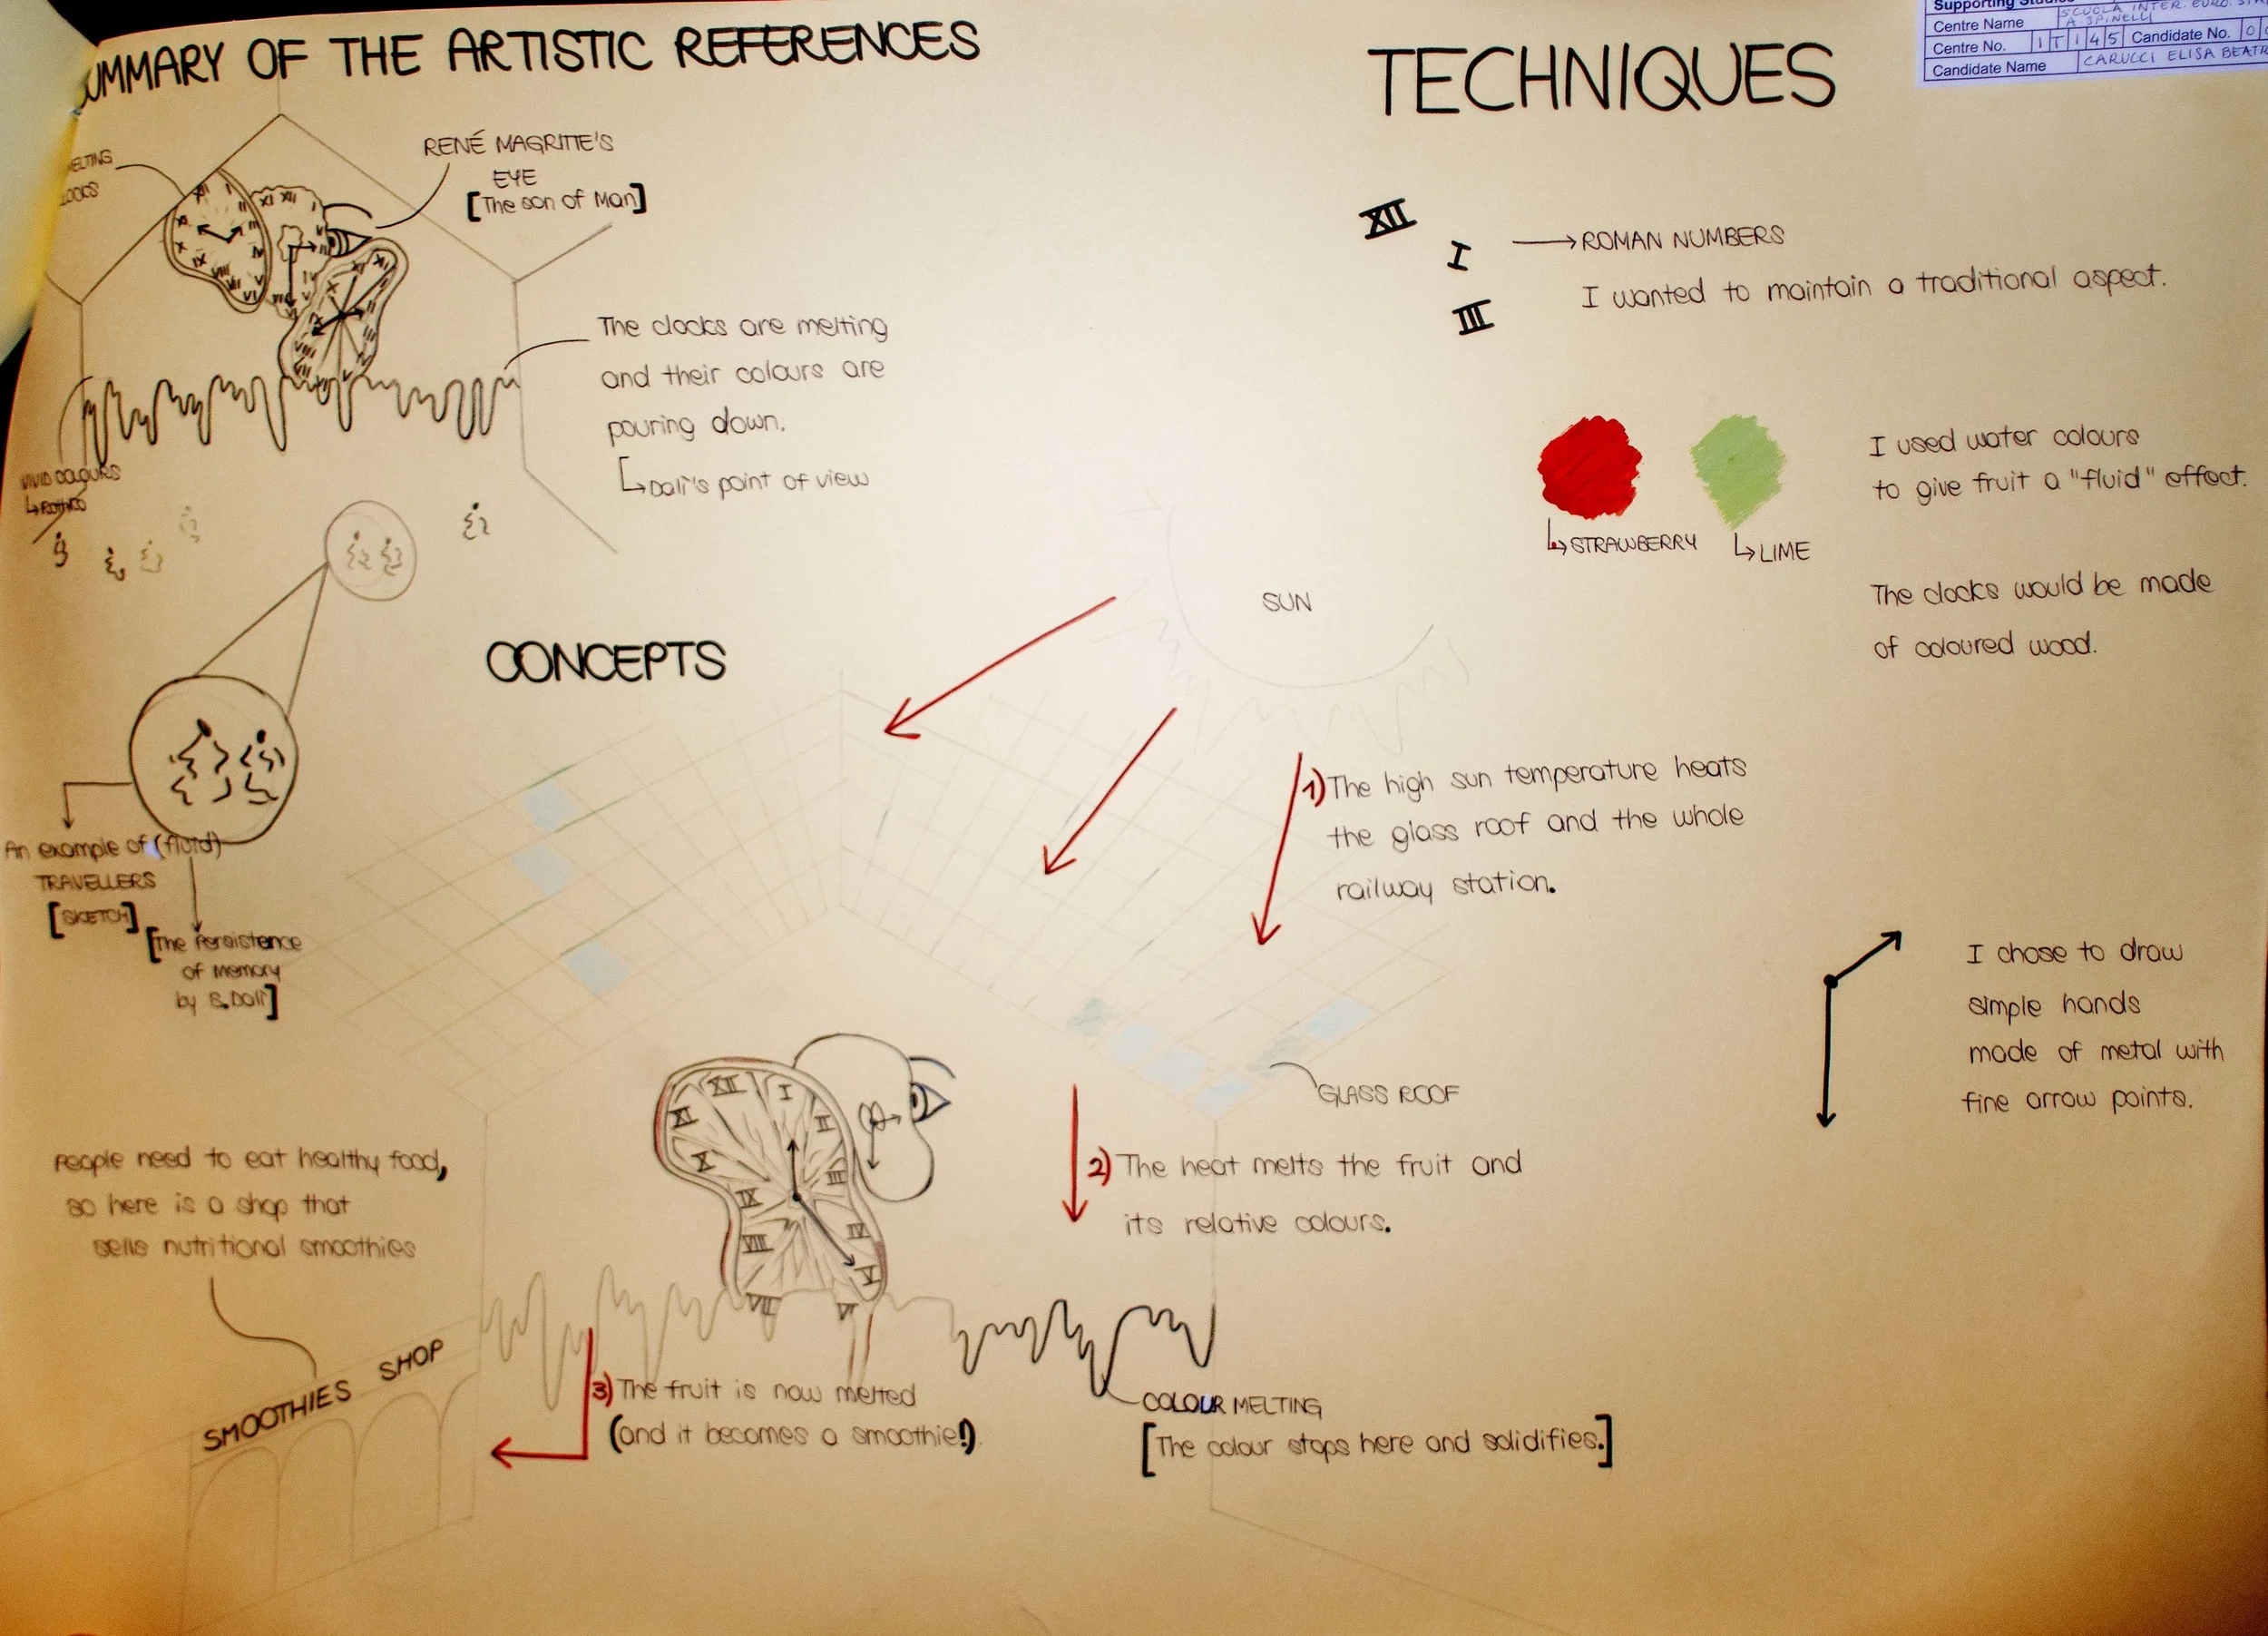 SUMMARY OF THE ARTISTIC REFERENCES
MELTING
CLOCKS
RENÉ MAGRITTE'S
EYE
[The son of Man]
XII I
II
XI
X
IX
VIII
VII
VI
V
IV
XI XII I
The clocks are melting
and their colours are
pouring down.
↳ Dalì's point of view
VIVID COLOURS
↳ ROTHKO
CONCEPTS
An example of (fluid)
TRAVELLERS
[SKETCH]
[The Persistence
of Memory
by S. Dalì]
SUN
1) The high sun temperature heats
the glass roof and the whole
railway station.
GLASS ROOF
2) The heat melts the fruit and
its relative colours.
XII
I
II
III
IV
V
VI
VII
VIII
IX
X
XI
People need to eat healthy food,
so here is a shop that
sells nutritional smoothies
SMOOTHIES SHOP
3) The fruit is now melted
(and it becomes a smoothie!).
COLOUR MELTING
[The colour stops here and solidifies.]
TECHNIQUES
XII
I
III
→ ROMAN NUMBERS
I wanted to maintain a traditional aspect.
↳ STRAWBERRY
↳ LIME
I used water colours
to give fruit a "fluid" effect.
The clocks would be made
of coloured wood.
I chose to draw
simple hands
made of metal with
fine arrow points.
Supporting Studies
Centre Name SCUOLA INTER. EURO.
A SPINELLI
Centre No. I T 1 4 5 Candidate No. 0
Candidate Name CARUCCI ELISA BEATR